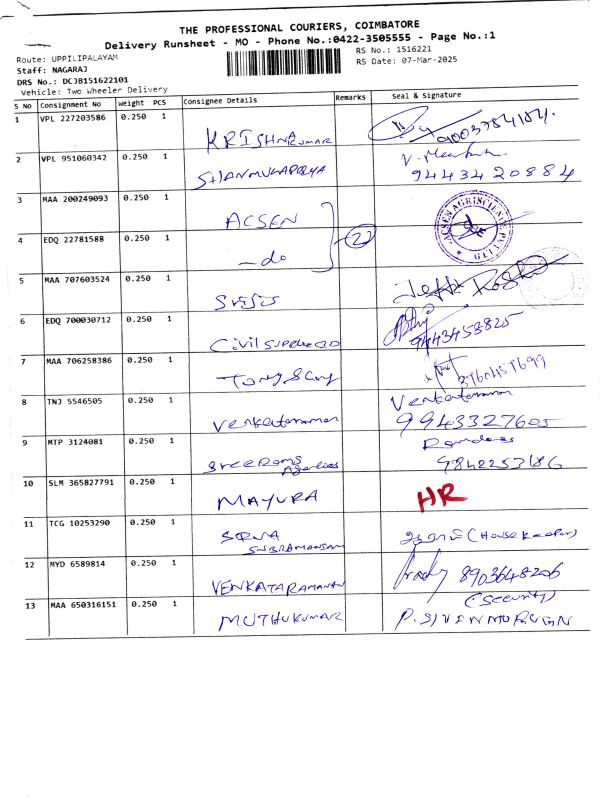 THE PROFESSIONAL COURIERS, COIMBATORE
Delivery Runsheet - MO - Phone No.:0422-3505555 - Page No.:1
Route: UPPILIPALAYAM
RS No.: 1516221
Staff: NAGARAJ
RS Date: 07-Mar-2025
DRS No.: DCJB151622101
Vehicle: Two Wheeler Delivery
S No Consignment No Weight PCS Consignee Details Remarks Seal & Signature
1 VPL 227203586 0.250 1 KRISHNA KUMAR
2 VPL 951060342 0.250 1 9443420884
3 MAA 200249093 0.250 1 ACSEN
4 EDQ 22781588 0.250 1 -do
5 MAA 707603524 0.250 1
6 EDQ 700030712 0.250 1 9443453825
7 MAA 706258386 0.250 1
8 TNJ 5546505 0.250 1 Venkataraman Venkataraman
9943327605
9 MTP 3124081 0.250 1 Sree Rams Agencies
9842253186
10 SLM 365827791 0.250 1 MAYURA HR
11 TCG 10253290 0.250 1 SUBRAMANIAM (House Keeper)
12 MYD 6589814 0.250 1 VENKATARAMANAN 8903648206
(Security)
13 MAA 650316151 0.250 1 MUTHUKUMAR